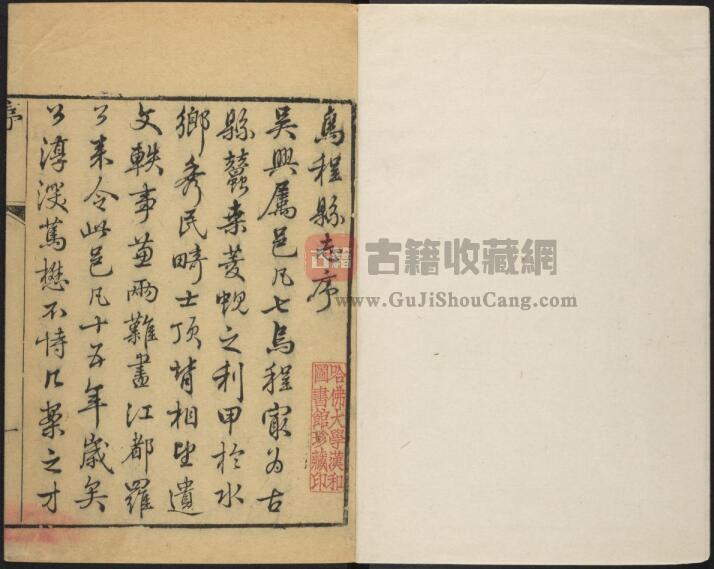 烏程縣志序
吳興屬邑凡七烏程宷為古
縣蠶桒菱蜆之利甲於水
鄉秀民畸士頂背相望遺
文軼事畝兩難盡江都羅
公来令此邑凡十五年歲矣
公淳淡篤懋不恃
之才
哈佛大學漢和
圖書館珍藏印
序
一
古籍
古籍收藏網
www.GuJiShouCang.com